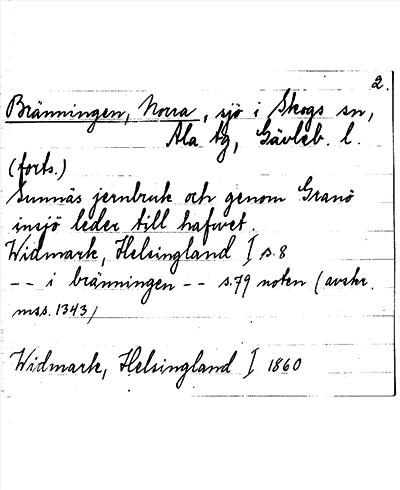 2.
Bränningen, Norra, sjö i Skogs sn,
Ala tg, Gävleb. l.
(forts.)
Sunnäs jernbruk och genom Granö
insjö leder till hafvet.
Widmark, Helsingland I s.8
-- i bränningen -- s.79 noten (avskr.
mss. 1343)
Widmark, Helsingland I 1860